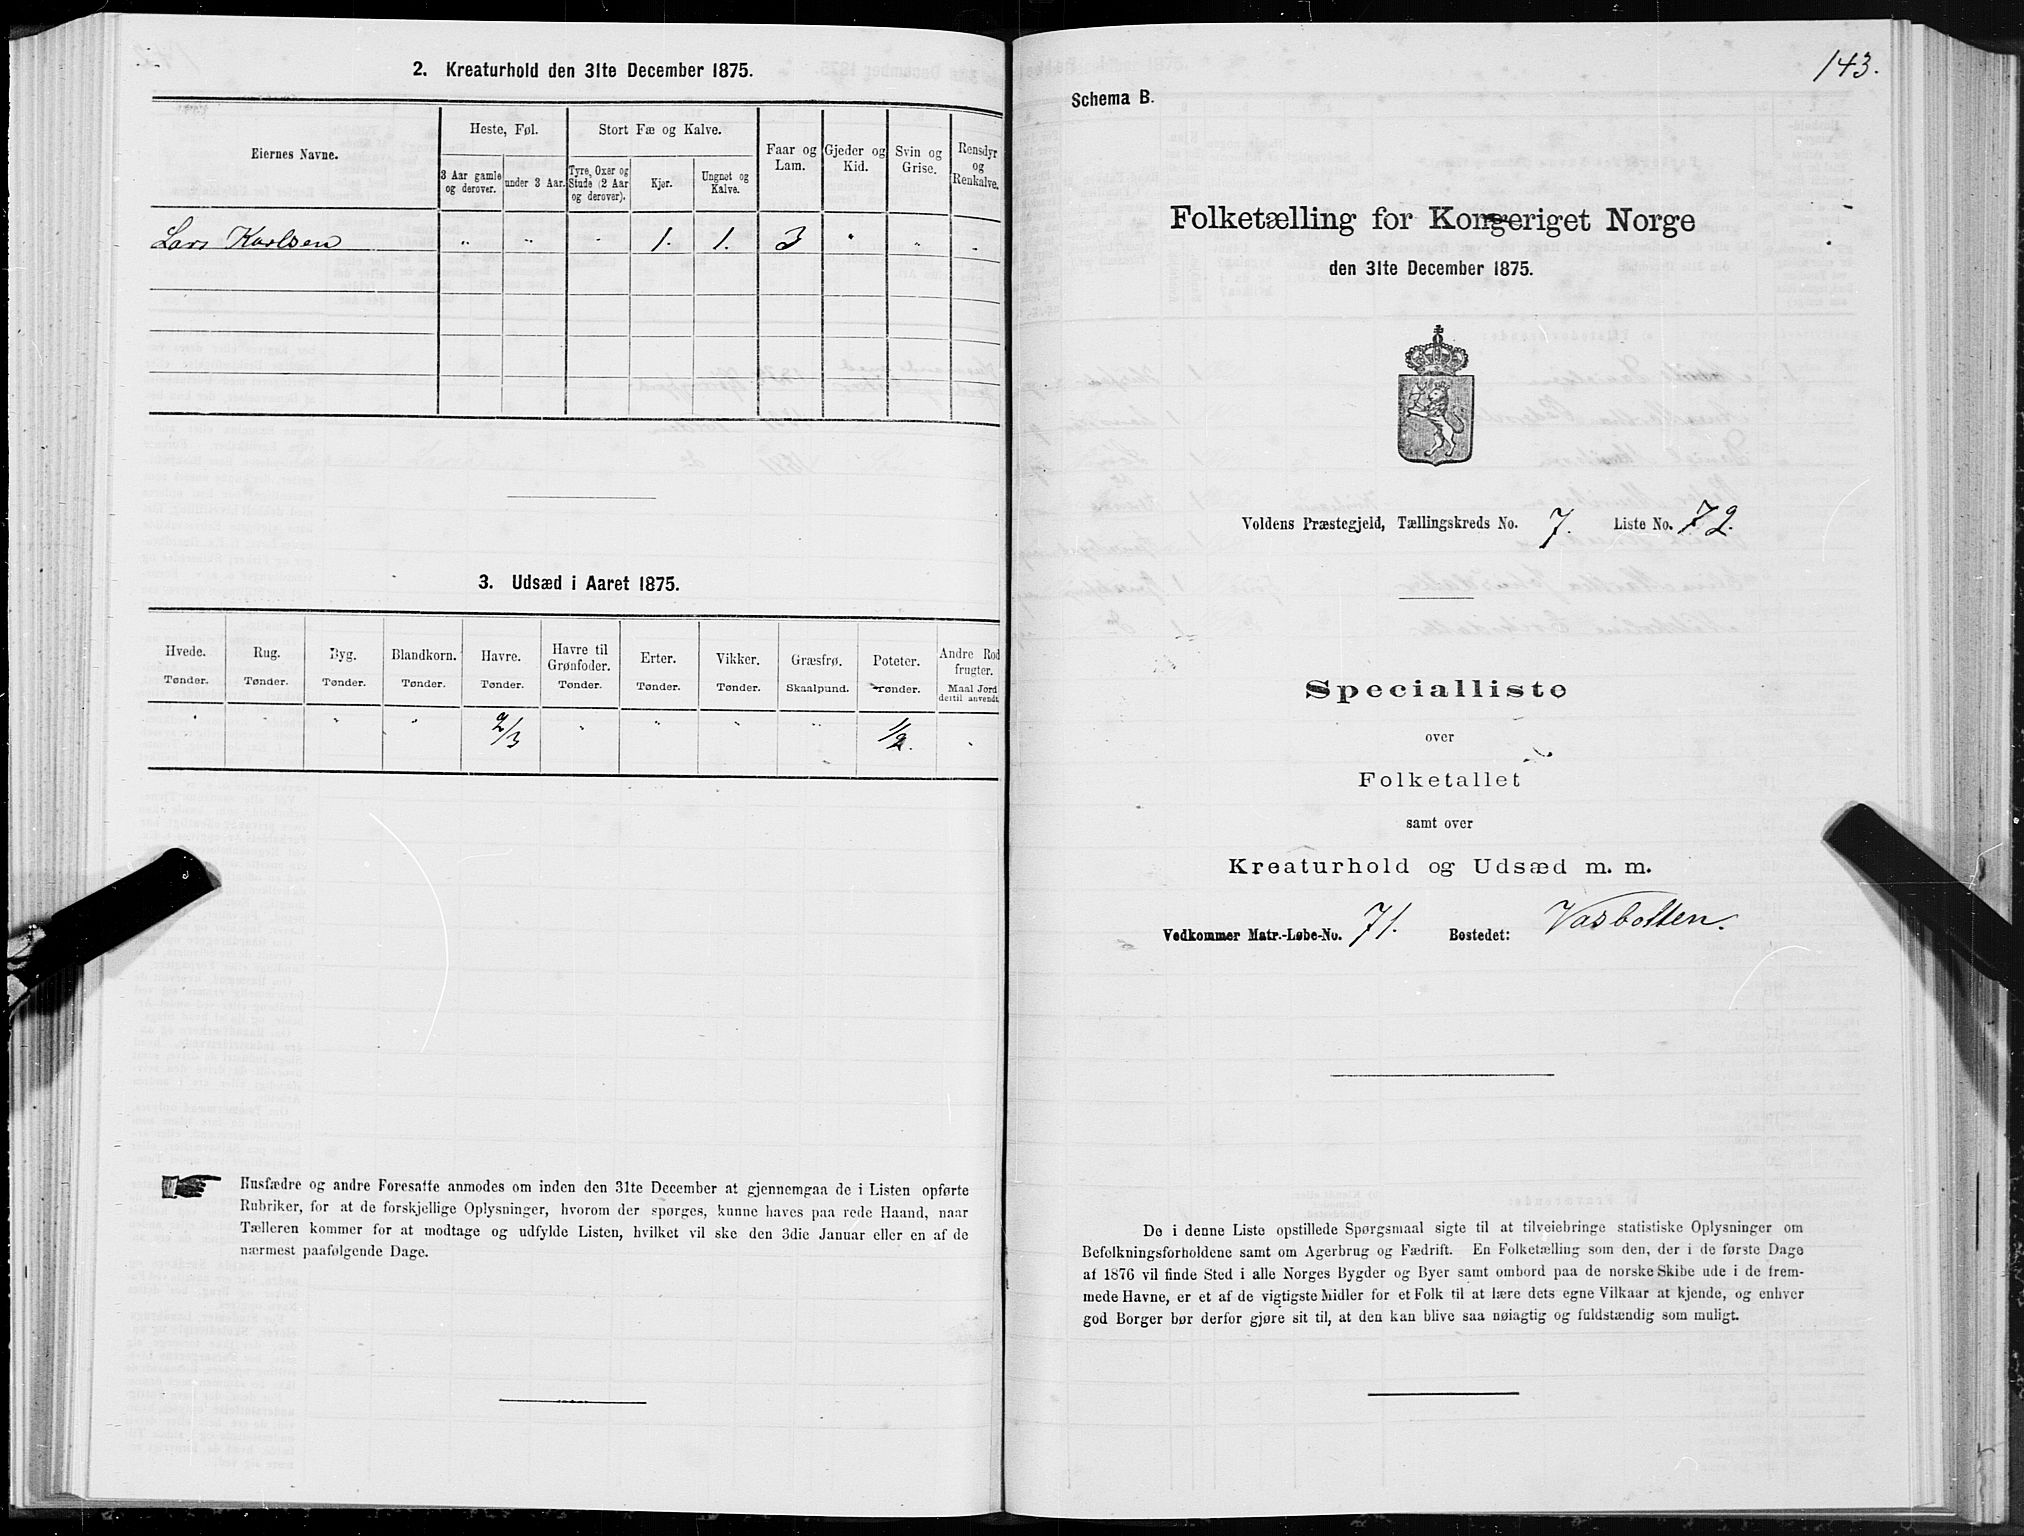 2. Kreaturhold den 31te December 1875.
Eiernes Navne.
Heste, Føl.
Stort Fæ og Kalve.
Faar og Lam.
Gjeder og Kid.
Svin og Grise.
Rensdyr og Renkalve.
3 Aar gamle og derover.
under 3 Aar.
Tyre, Oxer og Stude (2 Aar og derover).
Kjør.
Ungnøt og Kalve.
Lars Karlsen " " " 1. 1. 3 " " "
3. Udsæd i Aaret 1875.
Hvede. Rug. Byg. Blandkorn. Havre. Havre til Grønfoder. Erter. Vikker. Græsfrø. Poteter. Andre Rodfrugter.
Tønder. Tønder. Tønder. Tønder. Tønder. Tønder. Tønder. Tønder. Skaalpund. Tønder. Maal Jord dertil anvendt.
" " " " 2/3 " " " " 1/2. "
Husfædre og andre Foresatte anmodes om inden den 31te December at gjennemgaa de i Listen opførte
Rubriker, for at de forskjellige Oplysninger, hvorom der spørges, kunne haves paa rede Haand, naar
Tælleren kommer for at modtage og udfylde Listen, hvilket vil ske den 3die Januar eller en af de
nærmest paafølgende Dage.
143.
Schema B.
Folketælling for Kongeriget Norge
den 31te December 1875.
Voldens Præstegjeld, Tællingskreds No. 7. Liste No. 72.
Specialliste
over
Folketallet
samt over
Kreaturhold og Udsæd m. m.
Vedkommer Matr.-Løbe-No. 71. Bostedet: Vasbotten.
De i denne Liste opstillede Spørgsmaal sigte til at tilveiebringe statistiske Oplysninger om
Befolkningsforholdene samt om Agerbrug og Fædrift. En Folketælling som den, der i de første Dage
af 1876 vil finde Sted i alle Norges Bygder og Byer samt ombord paa de norske Skibe ude i de frem-
mede Havne, er et af de vigtigste Midler for et Folk til at lære dets egne Vilkaar at kjende, og enhver
god Borger bør derfor gjøre sit til, at den kan blive saa nøiagtig og fuldstændig som muligt.